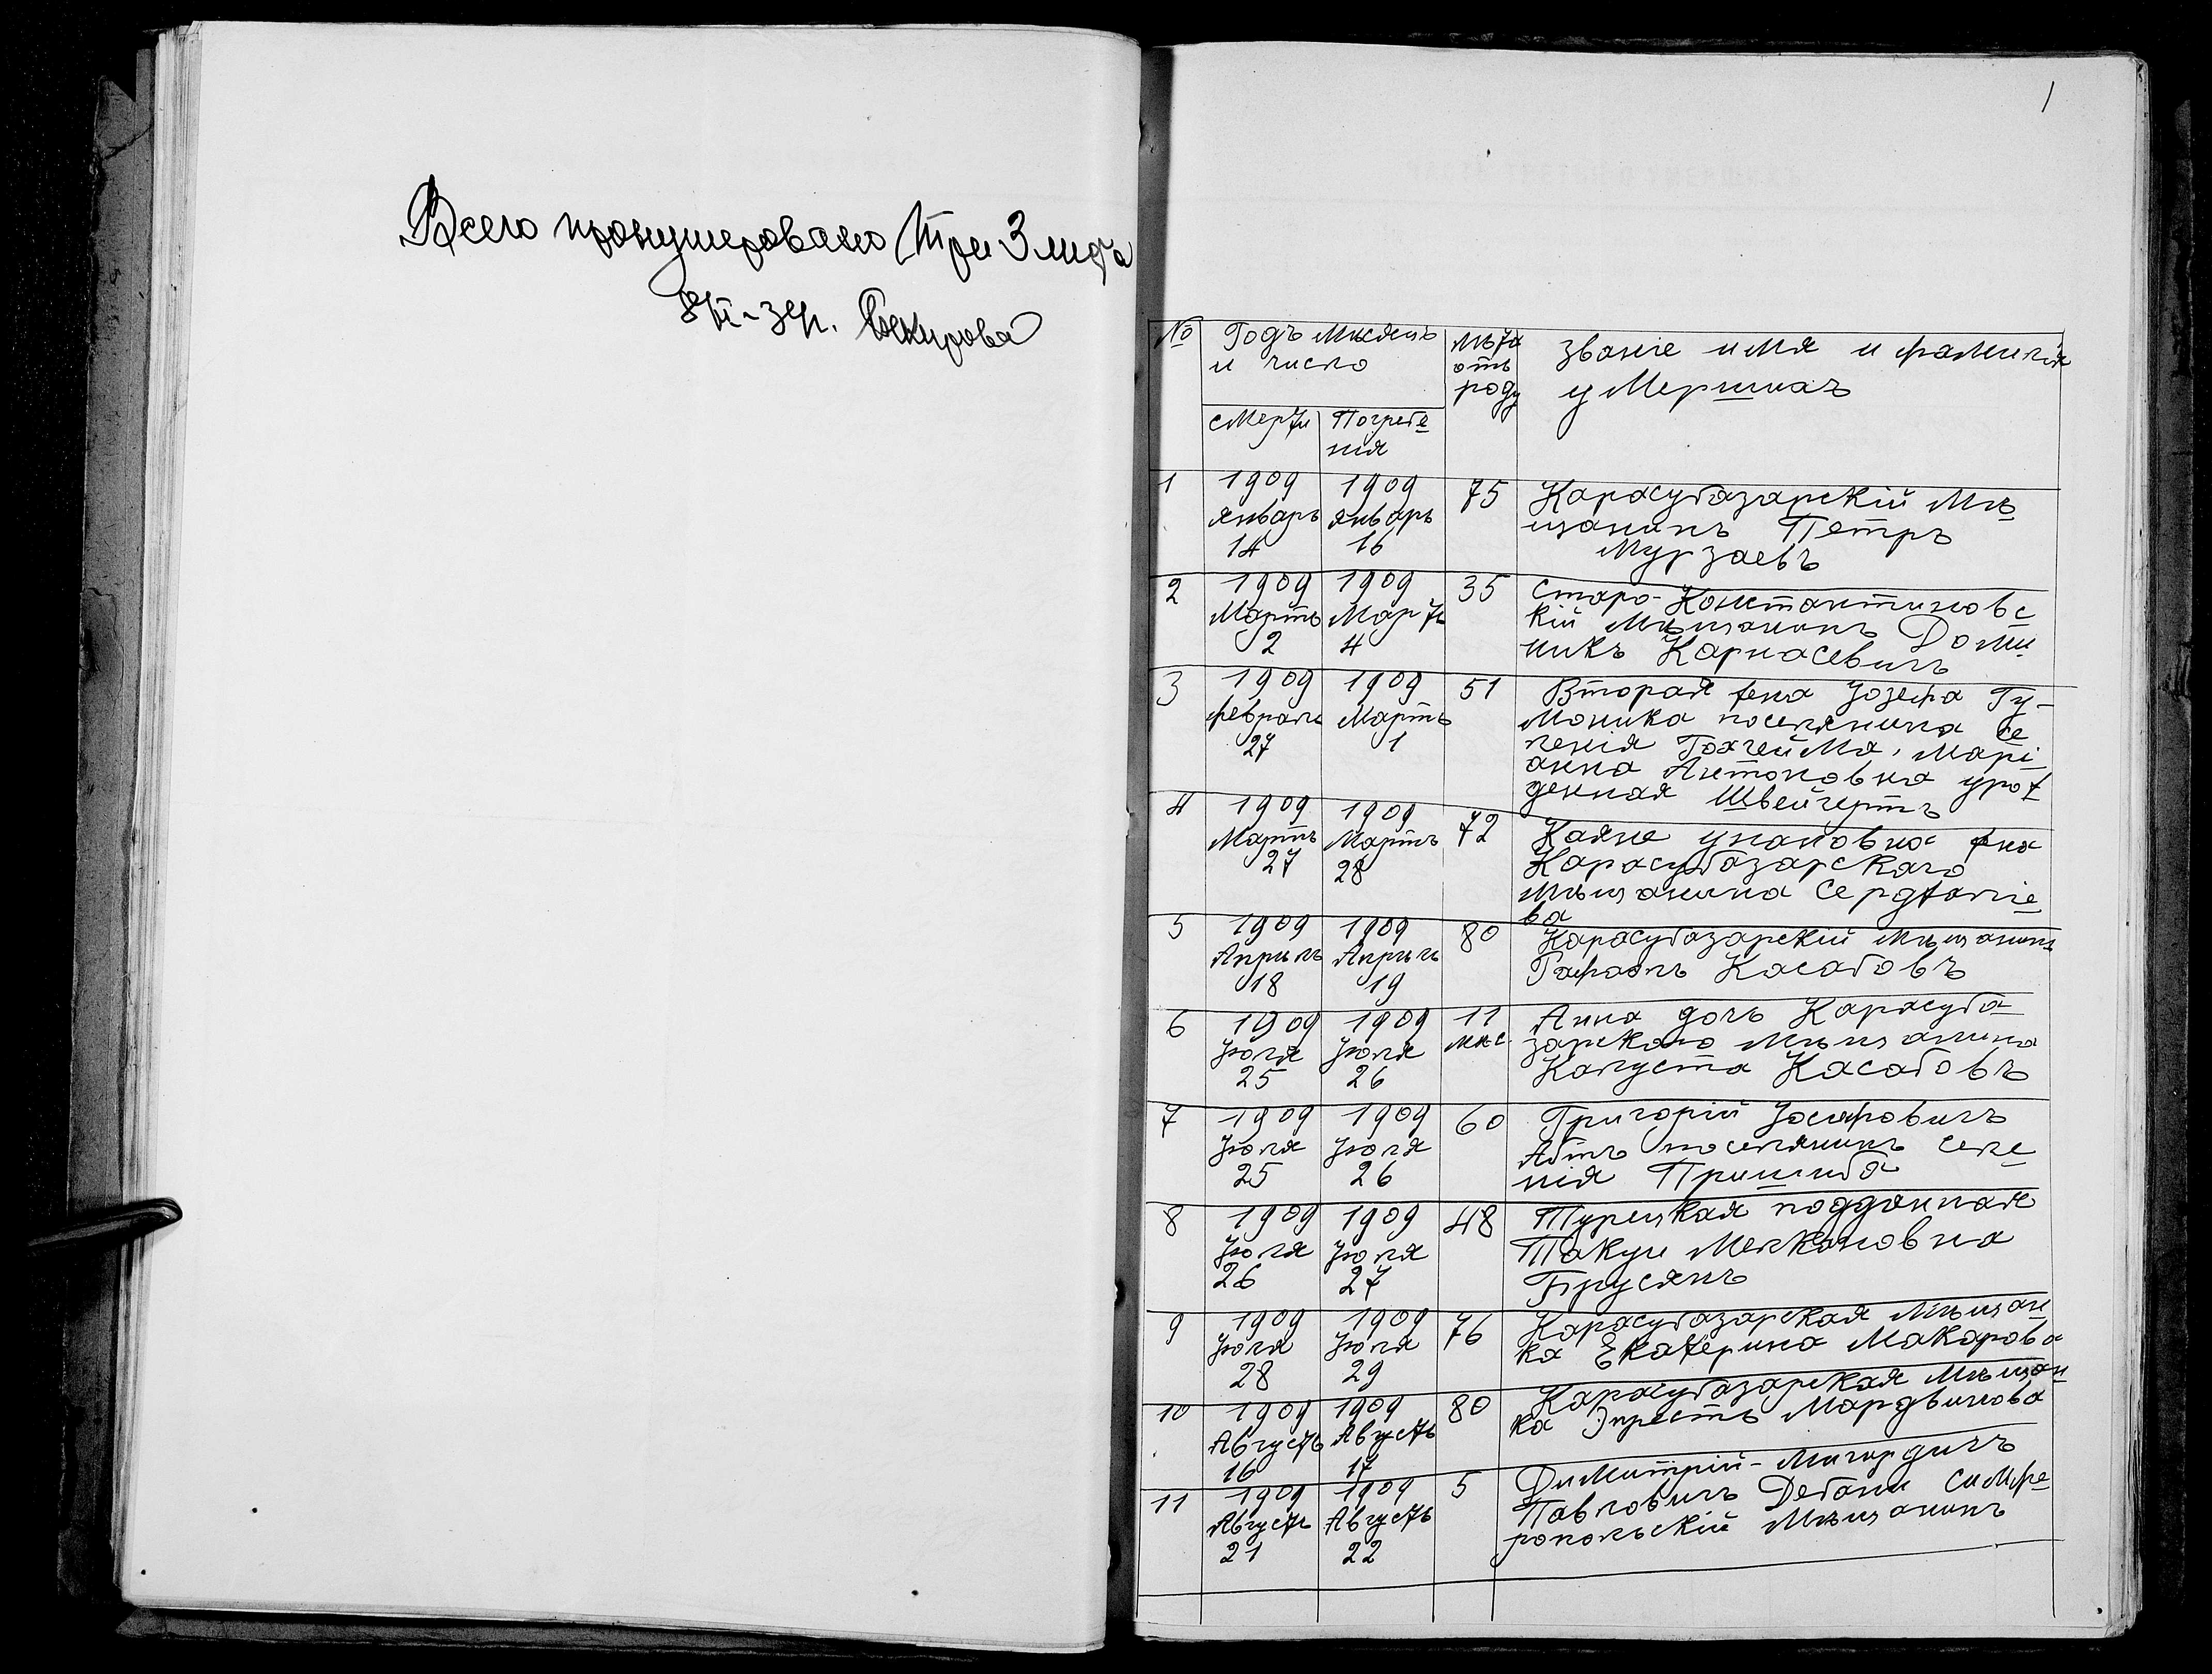 Всего пронумеровано три 3 листа
1
№
Годъ мѣсяцъ
и число
лѣта
отъ
роду
званіе имя и фамилія
умершихъ
смерти
Погребе
нія
1
1909
январь
14
1909
январь
16
75
Карасубазарскій Мѣ
щанинъ Петръ
Мурзаевъ
2
1909
Мартъ
2
1909
Мартъ
4
35
Старо-Константиновс
кій Мѣщанинъ Доми
никъ Карпасевичъ
3
1909
февраль
27
1909
Мартъ
1
51
Вторая жена Іозефа Гу-
моника поселянина се
ленія Гохгейма, Марі
анна Антоновна урож
денная Швейгертъ
4
1909
Мартъ
27
1909
Мартъ
28
72
жна
Карасубазарскаго
Мѣщанина Сердаліе
ва
5
1909
Апрѣль
18
1909
Апрѣль
19
80
Карасубазарскій мѣщанинъ
Рафаэлъ Касабовъ
6
1909
Іюля
25
1909
Іюля
26
11
мѣс.
Анна дочь Карасуба
зарскаго Мѣщанина
Капуста Касабовъ
7
1909
Іюля
25
1909
Іюля
26
60
Григорій Іосифовичъ
Абтъ поселянинъ селе
нія Пришиба
8
1909
Іюля
26
1909
Іюля
27
48
Турецкая подданная
Такуи Мелконовна
Брусянъ
9
1909
Іюля
28
1909
Іюля
29
76
Карасубазарская Мѣщан
ка Екатерина Макарова
10
1909
Августъ
16
1909
Августъ
17
80
Карасубазарская Мѣщан
ка Мардвинова
11
1909
Августъ
21
1909
Августъ
22
5
Димитрій-Мигирдичъ
Павловичъ Дебани симфе
ропольскій Мѣщанинъ